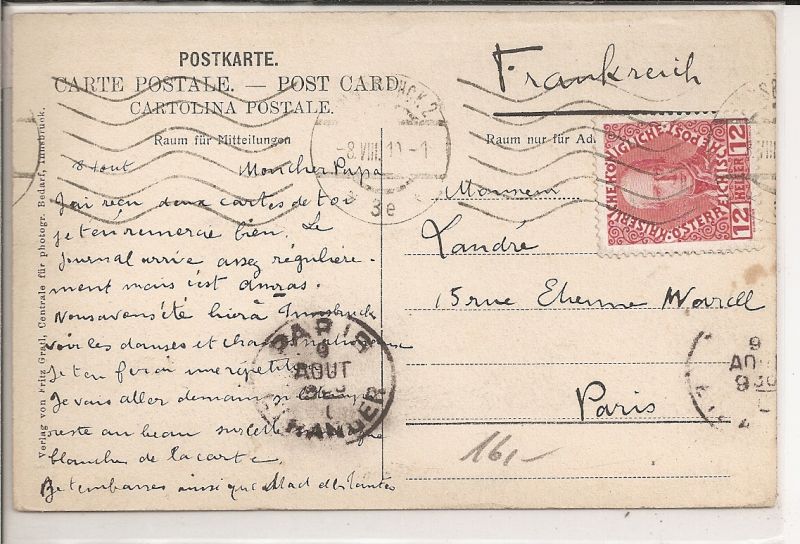 POSTKARTE.
CARTE POSTALE. — POST CARD
CARTOLINA POSTALE.
Raum für Mitteilungen
8 Aout
Mon cher Papa
J'ai reçu deux cartes de toi
je t'en remercie bien. Le
journal arrive assez régulière-
ment mais c'est
Nous avons été hier à Innsbruck
voir les danses et chants
je t'en ferai une répétition
Je vais aller demain si le temps
reste au beau sur cette
blanche de la carte.
Je t'embrasse ainsi que
Verlag von Fritz Gratl, Centrale für photogr. Bedarf, Innsbruck.
-8.VIII.10.-1
3e
PARIS
9
AOUT
ETRANGER
Frankreich
Raum nur für Ad
Monsieur
Landré
15 rue Etienne Marcel
Paris
KAISERLICHE KÖNIGLICHE ÖSTERREICHISCHE POST
12 HELLER 12
9
AOU
930
161-